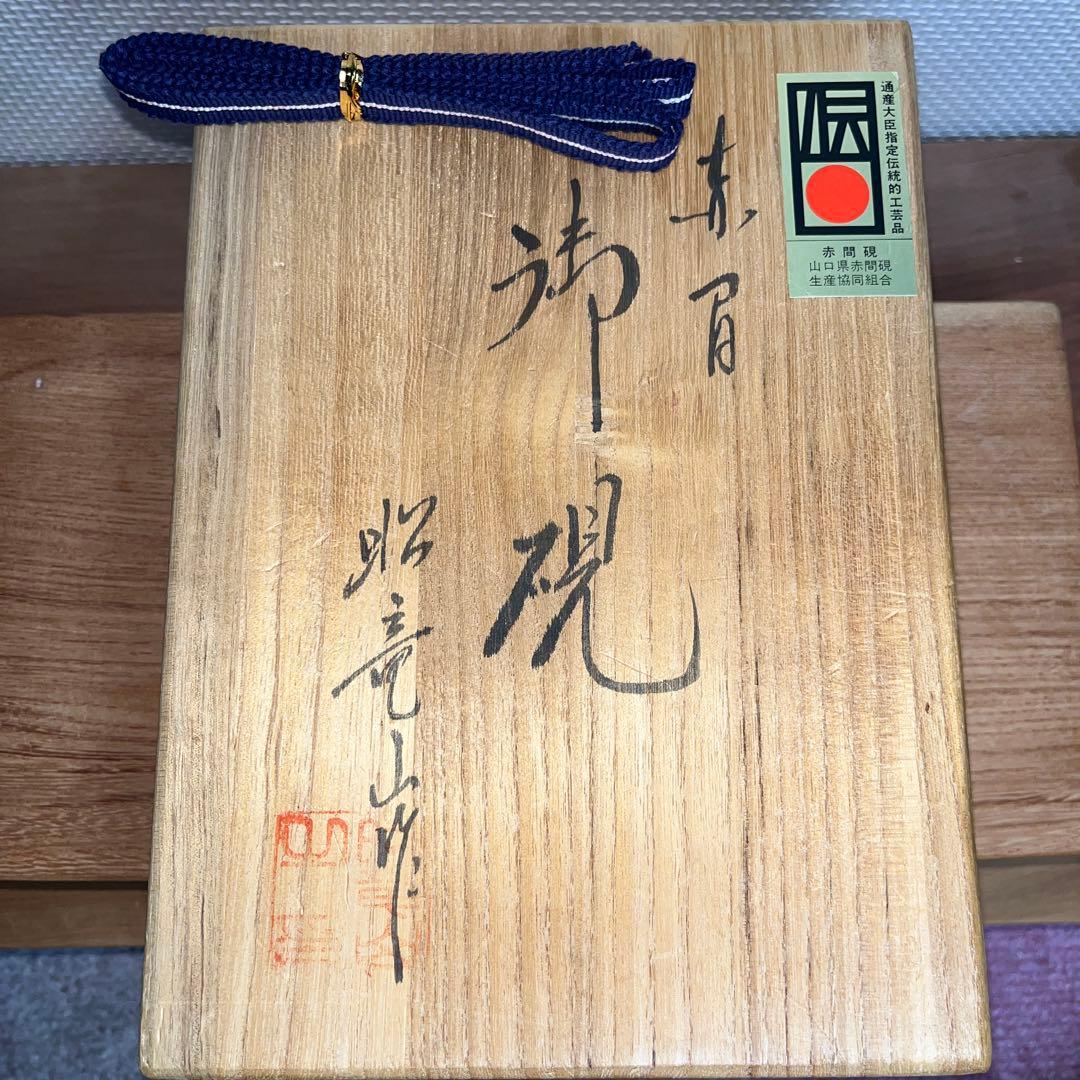 赤间
御硯
昭竜山作
通産大臣指定伝統的工芸品
赤間硯
山口県赤間硯
生産協同組合